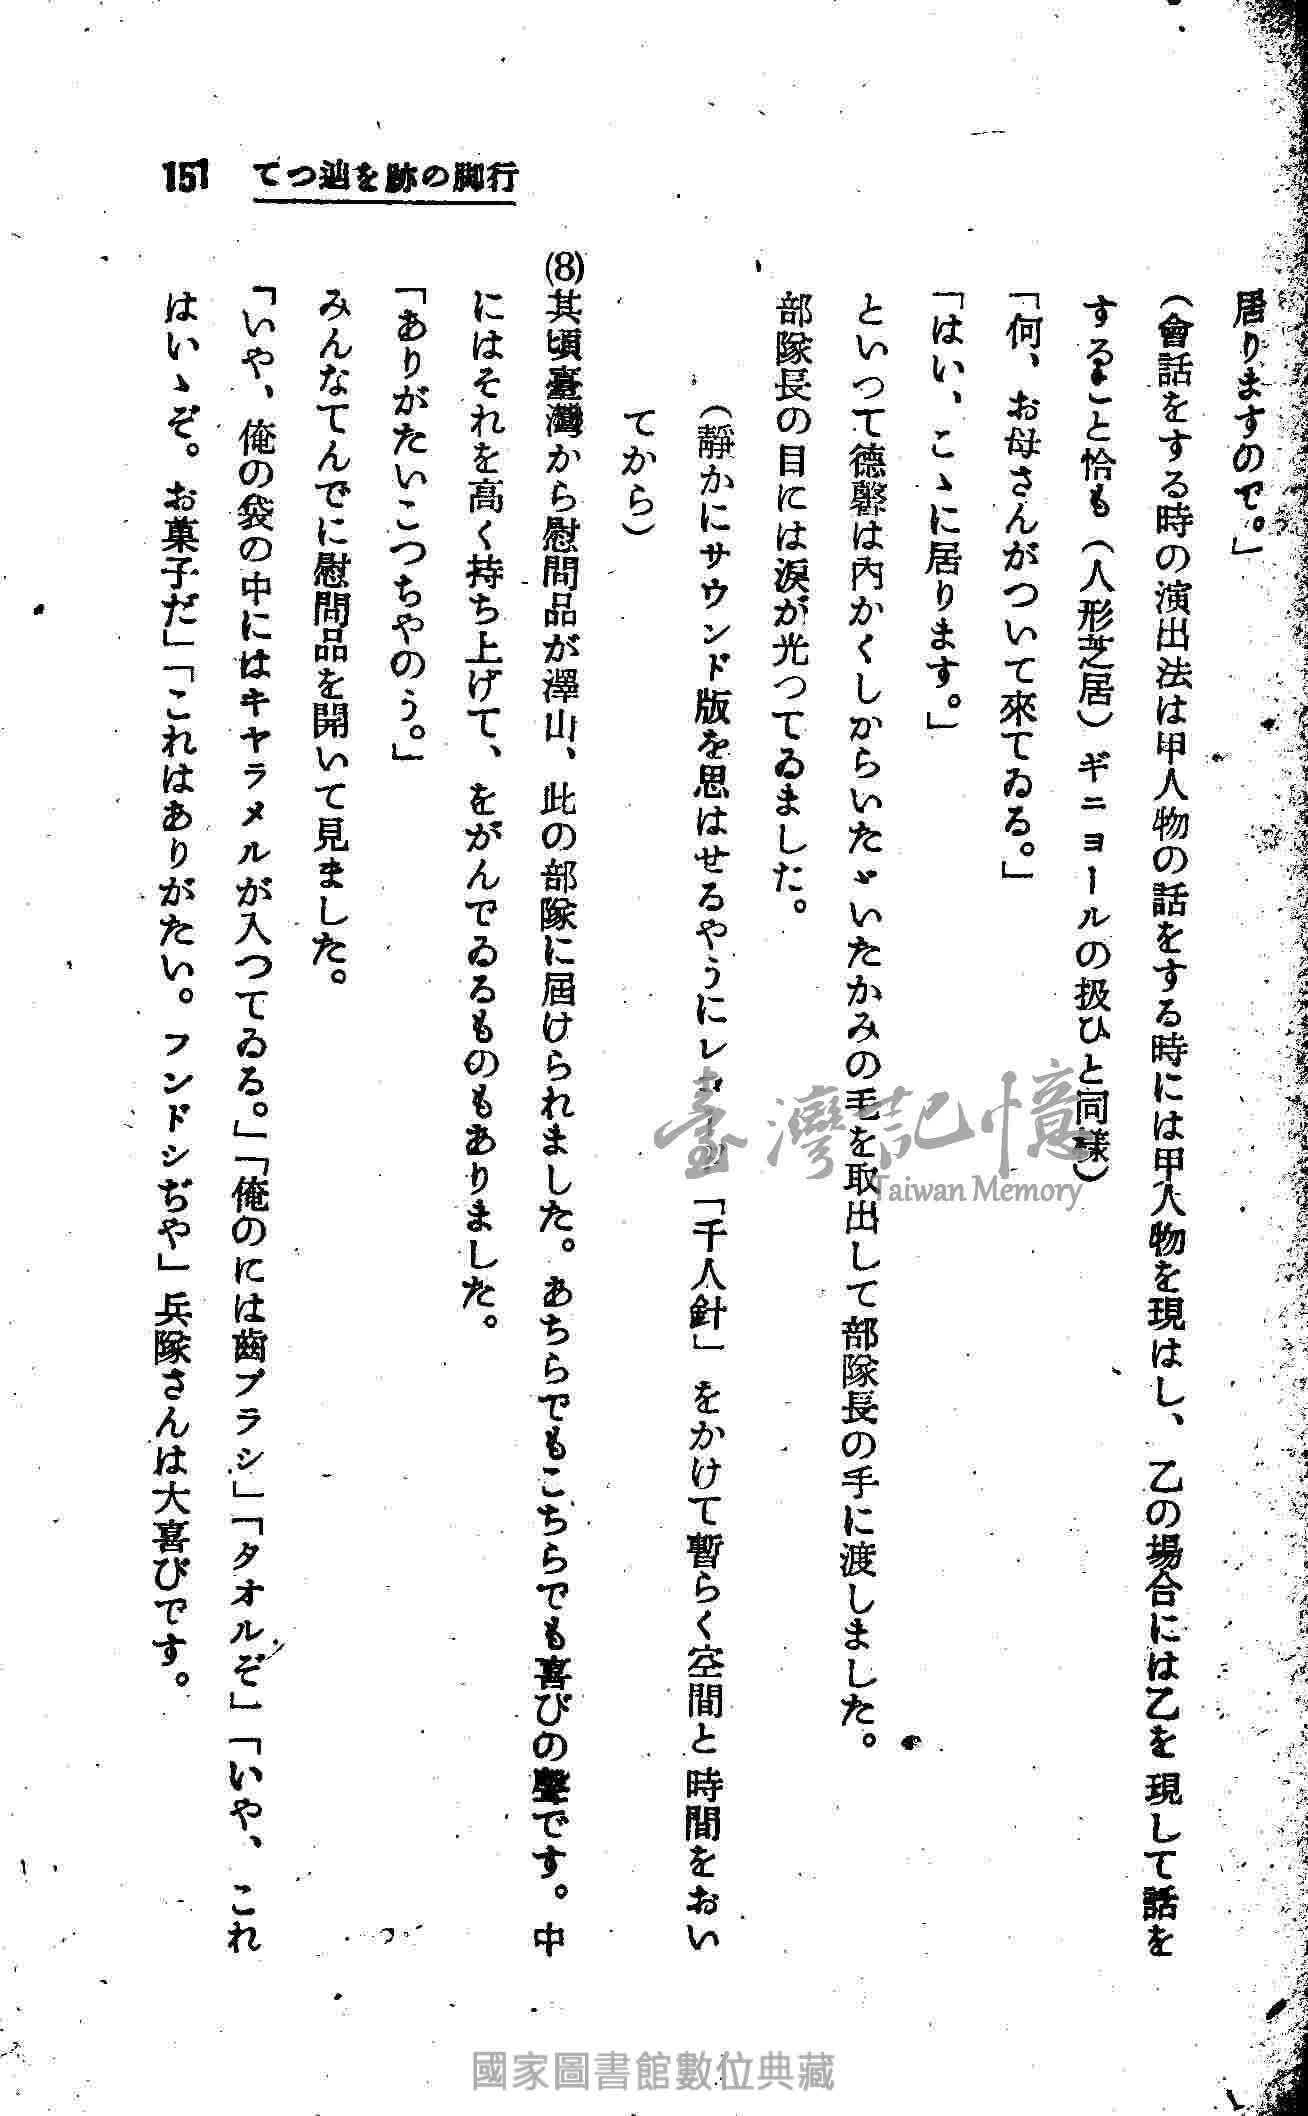 151 てつ辿を跡の脚行
居りますので。」
(會話をする時の演出法は甲人物の話をする時には甲人物を現はし、乙の場合には乙を現して話を
すること恰も(人形芝居)ギニヨールの扱ひと同樣)
「何、お母さんがついて來てゐる。」
「はい、こゝに居ります。」
といつて德馨は內かくしからいたゞいたかみの毛を取出して部隊長の手に渡しました。
部隊長の目には淚が光つてゐました。
(靜かにサウンド版を思はせるやうにレコード「千人針」をかけて暫らく空間と時間をおい
てから)
(8)其頃臺灣から慰問品が澤山、此の部隊に屆けられました。あちらでもこちらでも喜びの聲です。中
にはそれを高く持ち上げて、をがんでゐるものもありました。
「ありがたいこつちやのう。」
みんなてんでに慰問品を開いて見ました。
「いや、俺の袋の中にはキヤラメルが入つてゐる。」「俺のには齒ブラシ」「タオルぞ」「いや、これ
はいゝぞ。お菓子だ」「これはありがたい。フンドシぢや」兵隊さんは大喜びです。
臺灣記憶
Taiwan Memory
國家圖書館數位典藏